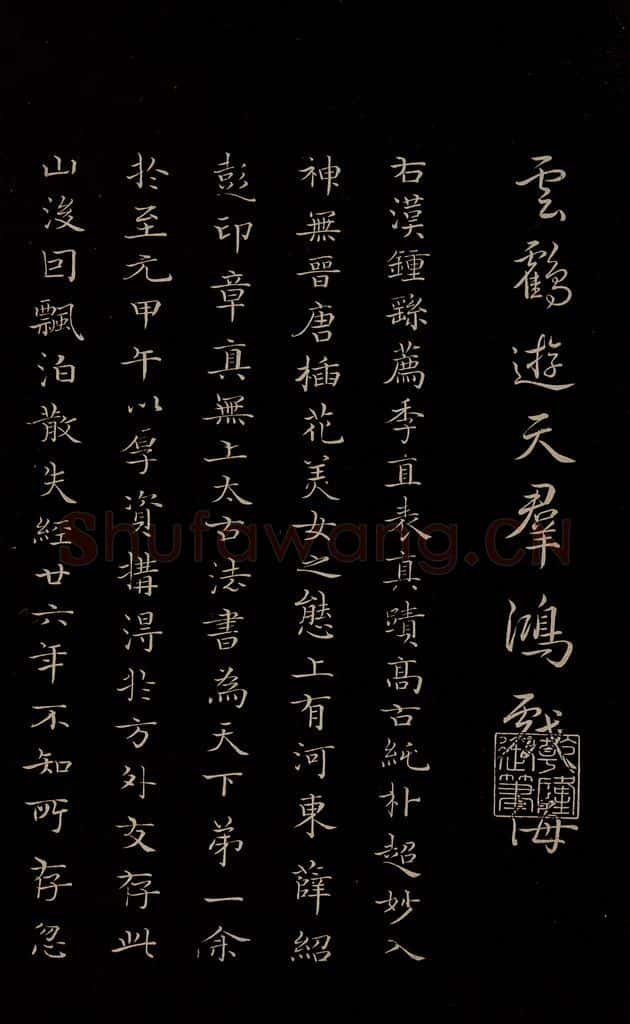 雲鶴遊天羣鴻戲海
右漢鍾繇薦季直表真蹟髙古純朴超妙入
神無晉唐插花美女之態上有河東薛紹
彭印章真無上太古法書為天下第一余
於至元甲午以厚資搆淂於方外友存此
山後因飄泊散失経廿六年不知所存忽
Shufawang.cn